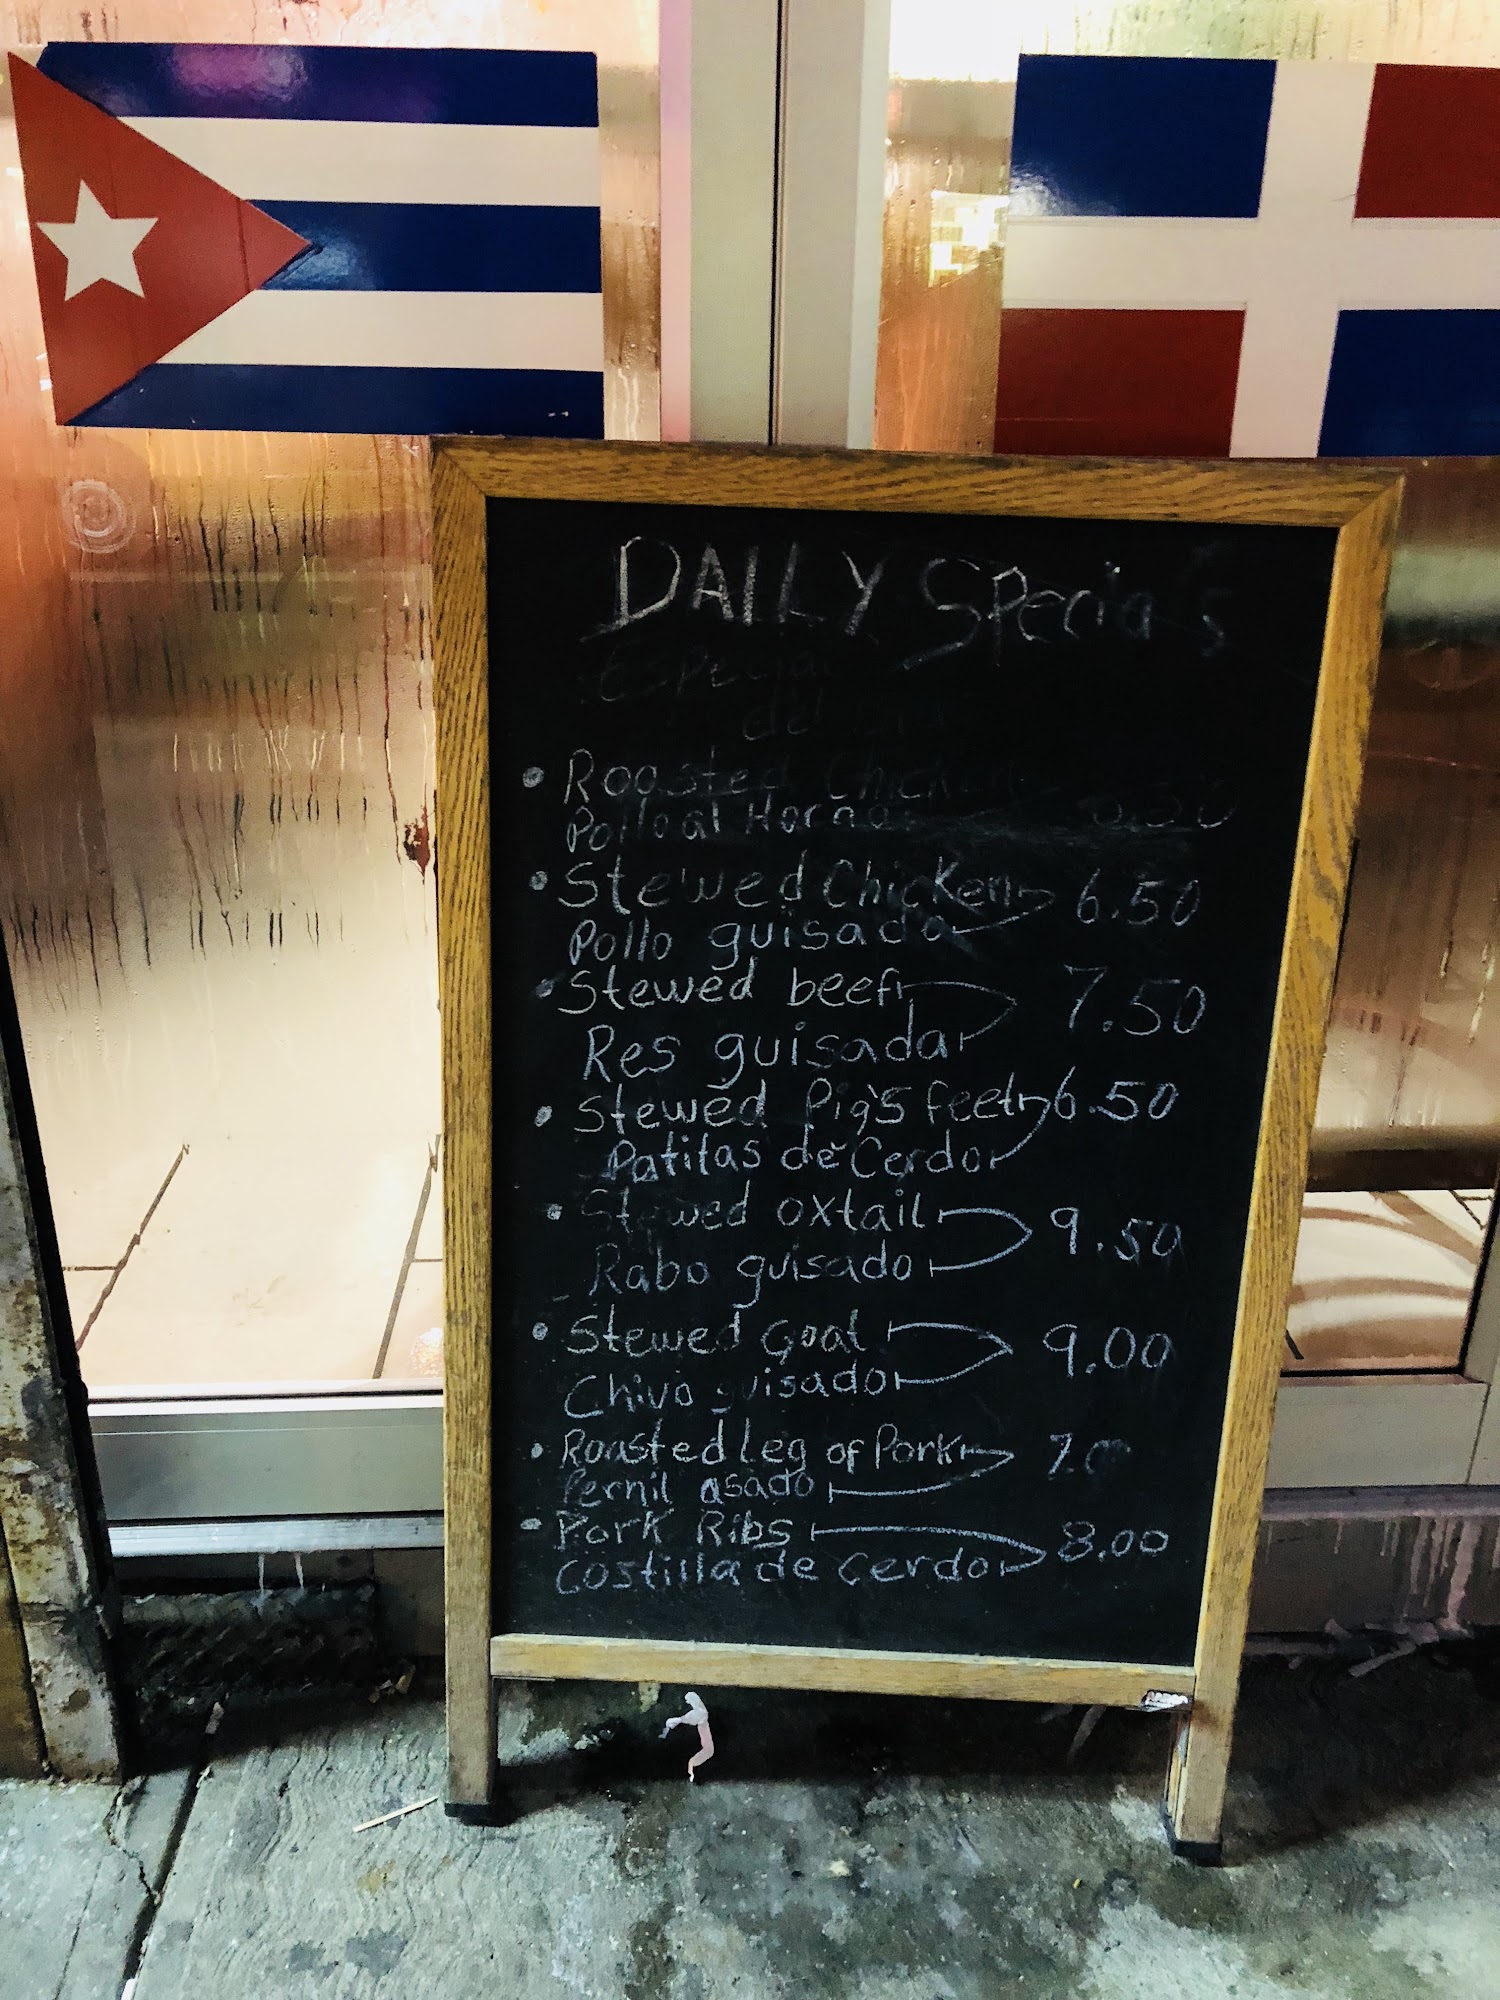 DAILY Specials
Especial
del
• Roasted Chicken
Pollo al Horno
• Stewed Chicken 6.50
Pollo guisado
• Stewed beef 7.50
Res guisada
• Stewed Pig's feet 6.50
Patitas de Cerdo
• Stewed oxtail 9.50
Rabo guisado
• Stewed Goat 9.00
Chivo guisado
• Roasted Leg of Pork
Pernil asado
• Pork Ribs 8.00
Costilla de Cerdo